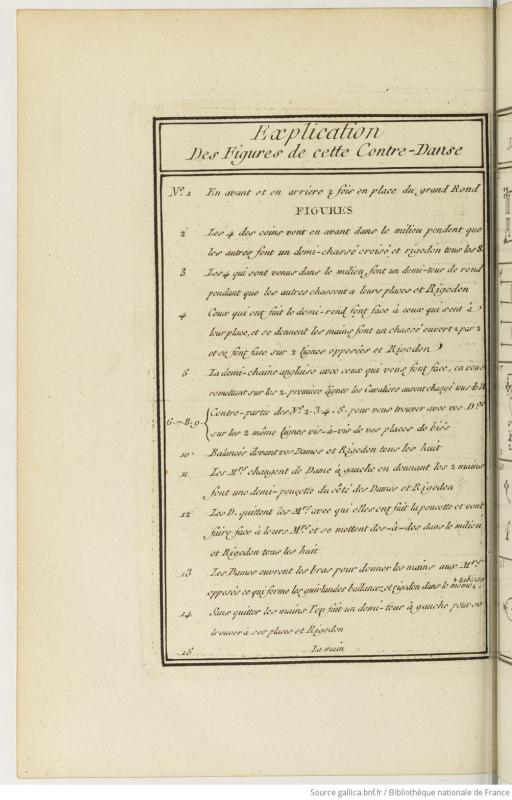 Explication
Des Figures de cette Contre-Danse
No. 1 En avant et en arriere 2 fois en place du grand Rond
FIGURES
2 Les 4 des coins vont en avant dans le milieu pendent que
les autres font un demi-chassé croisé et rigodon tous les 8.
3 Les 4 qui sont venus dans le milieu, font un demi-tour de rond
pendant que les autres chassent a leurs places et Rigodon
4 Ceux qui ont fait le demi-rond font face à ceux qui sont à
leur place, et se donnent les mains font un chassé ouvert 2 par 2
et se font face sur 2 lignes opposées et Rigodon
5 La demi-chaine anglaise avec ceux qui vous font face, en vous
remettant sur les 2. premiere lignes les Cavaliers auront changé tous de D.
6.7.8.9. Contre-partie des No. 2.3.4.5. pour vous trouver avec vos D.es
sur les 2 même lignes vis-à-vis de vos places de biés
10 Balancés devant vos Dames et Rigodon tous les huit
11 Les Mrs. changent de Dame à gauche en donnant les 2 mains
font une demi-poucette du côté des Dames et Rigodon
12 Les D. quittent les Mrs. avec qui elles ont fait la poucette et vont
faire face à leurs Mrs. et se mettent dos-à-dos dans le milieu
et Rigodon tous les huit
13 Les Dames ouvrent les bras pour donner les mains aux Mrs.
opposés ce qui forme les guirlandes ballancez et rigodon dans le même
14 Sans quitter les mains l'on fait un demi-tour à gauche pour se
trouver à ses places et Rigodon
15 La main
Source gallica.bnf.fr / Bibliothèque nationale de France